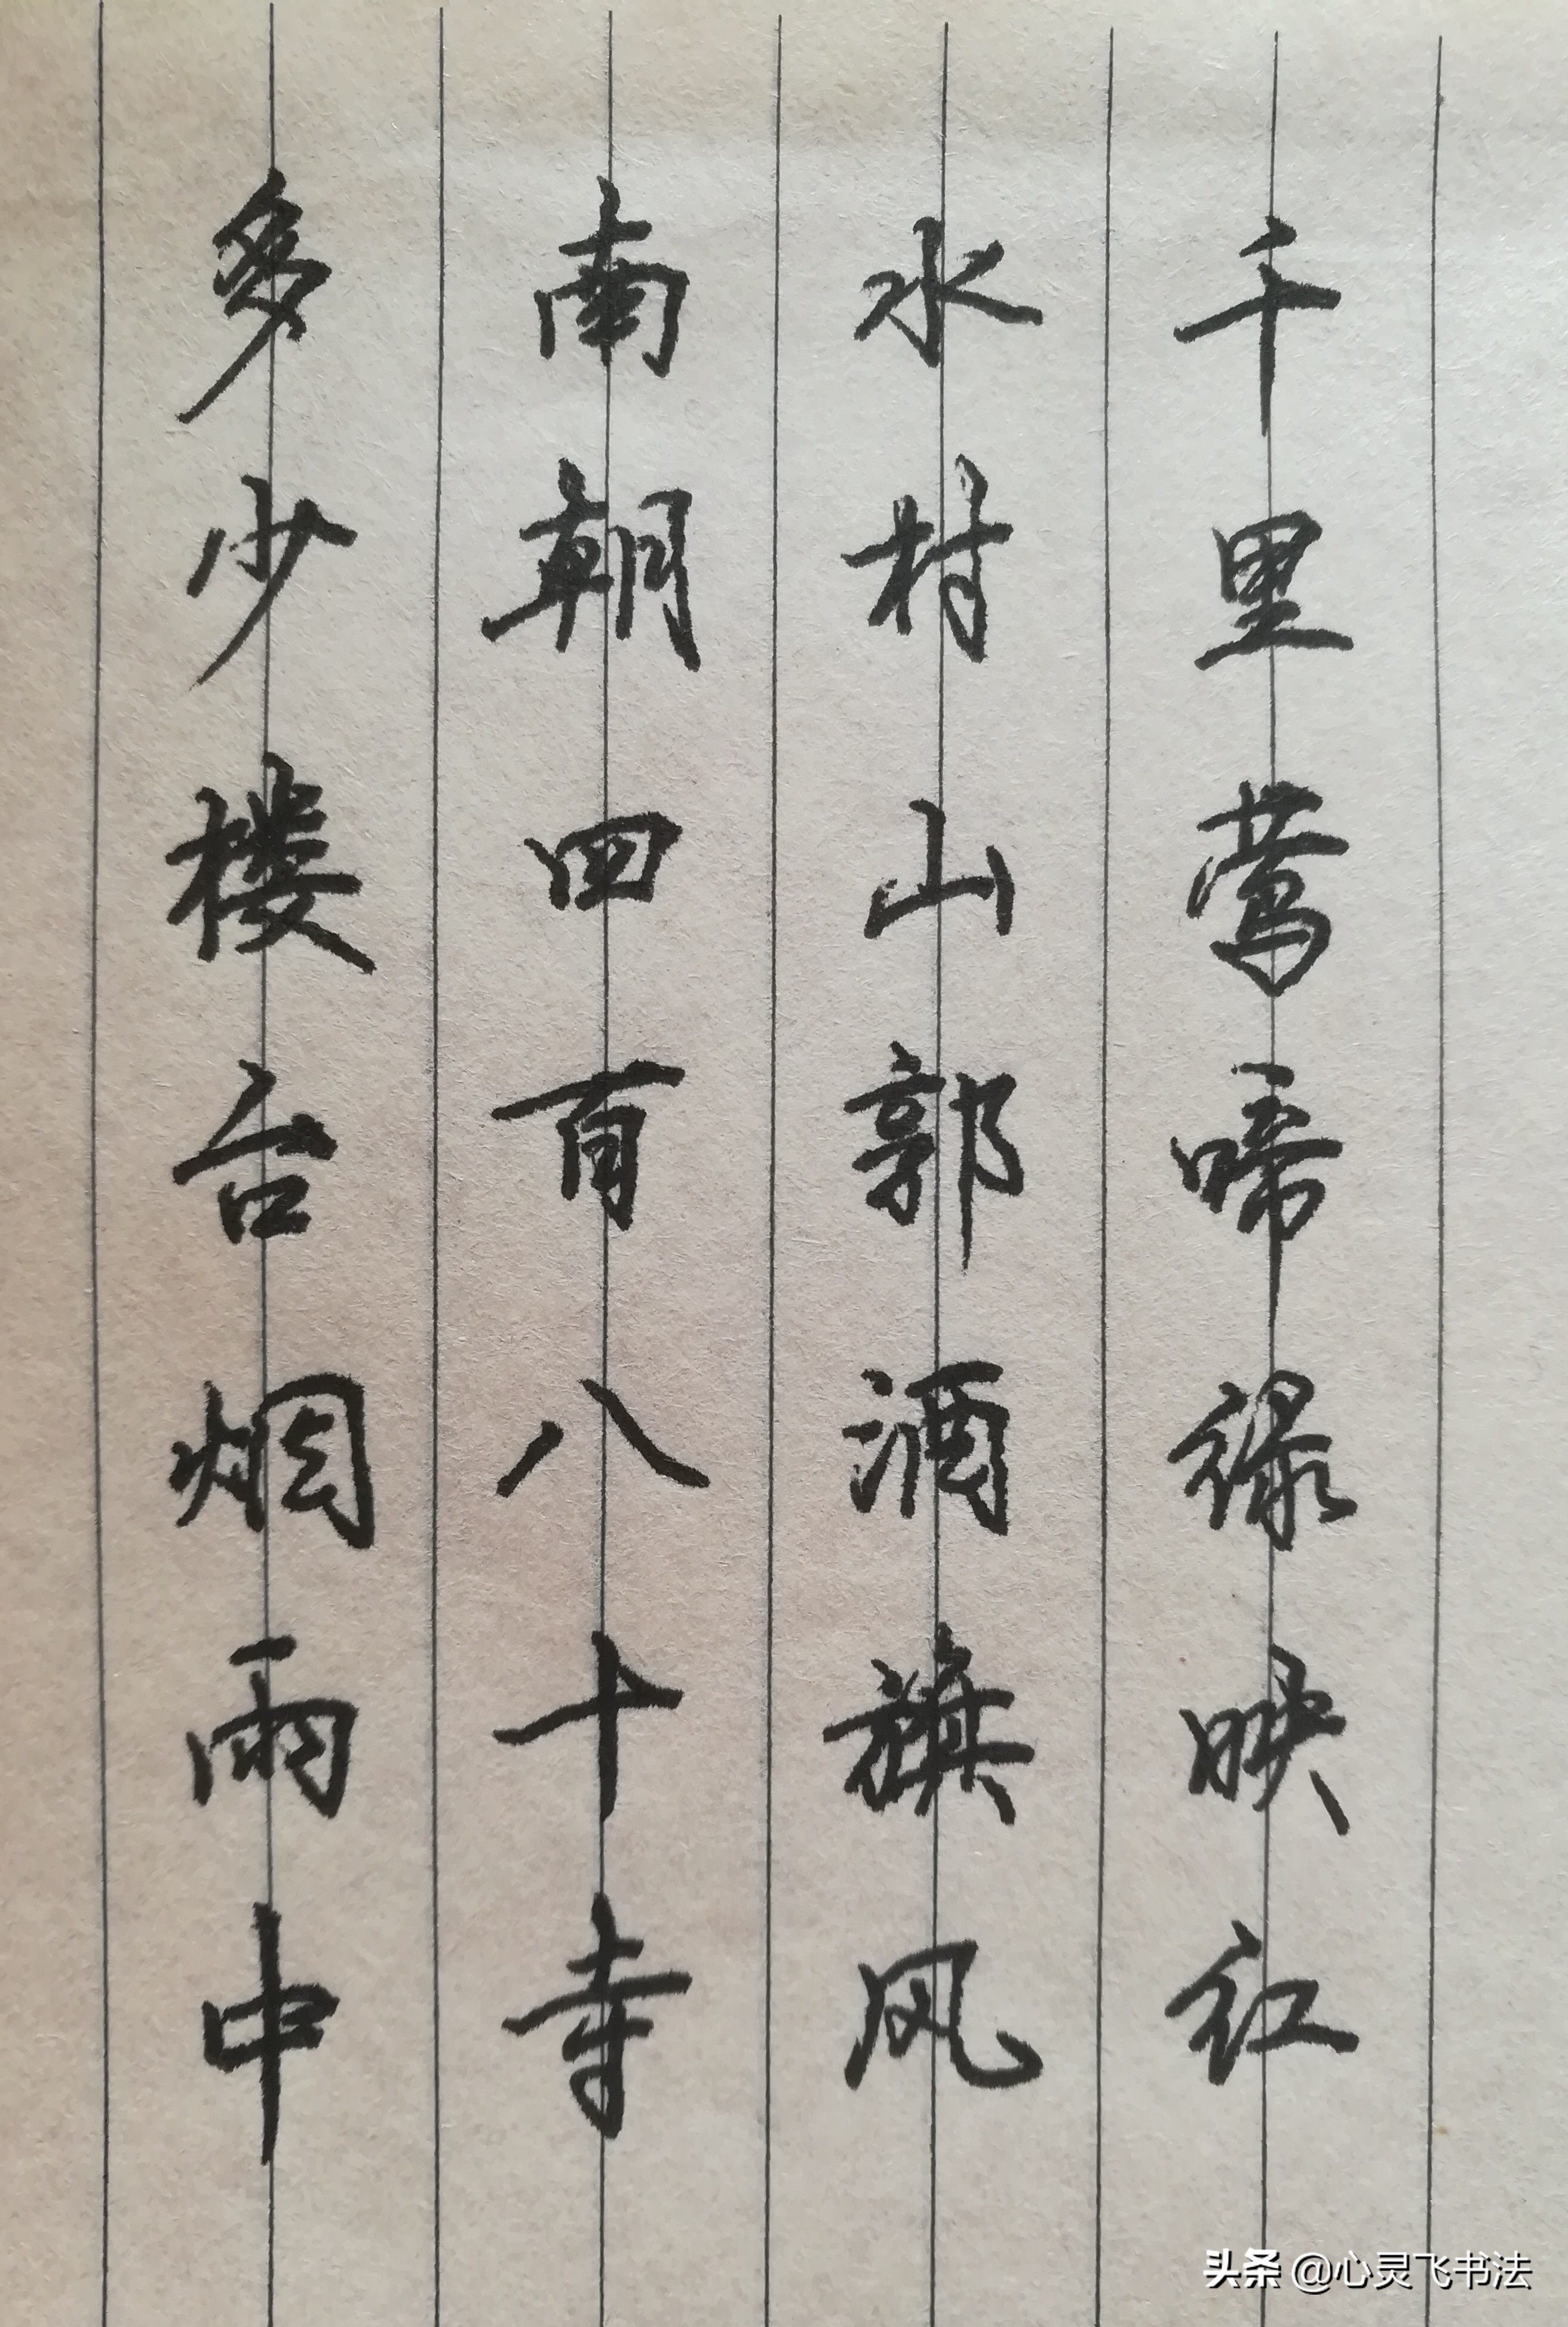 千里莺啼绿映红
水村山郭酒旗风
南朝四百八十寺
多少楼台烟雨中
头条 @心灵飞书法